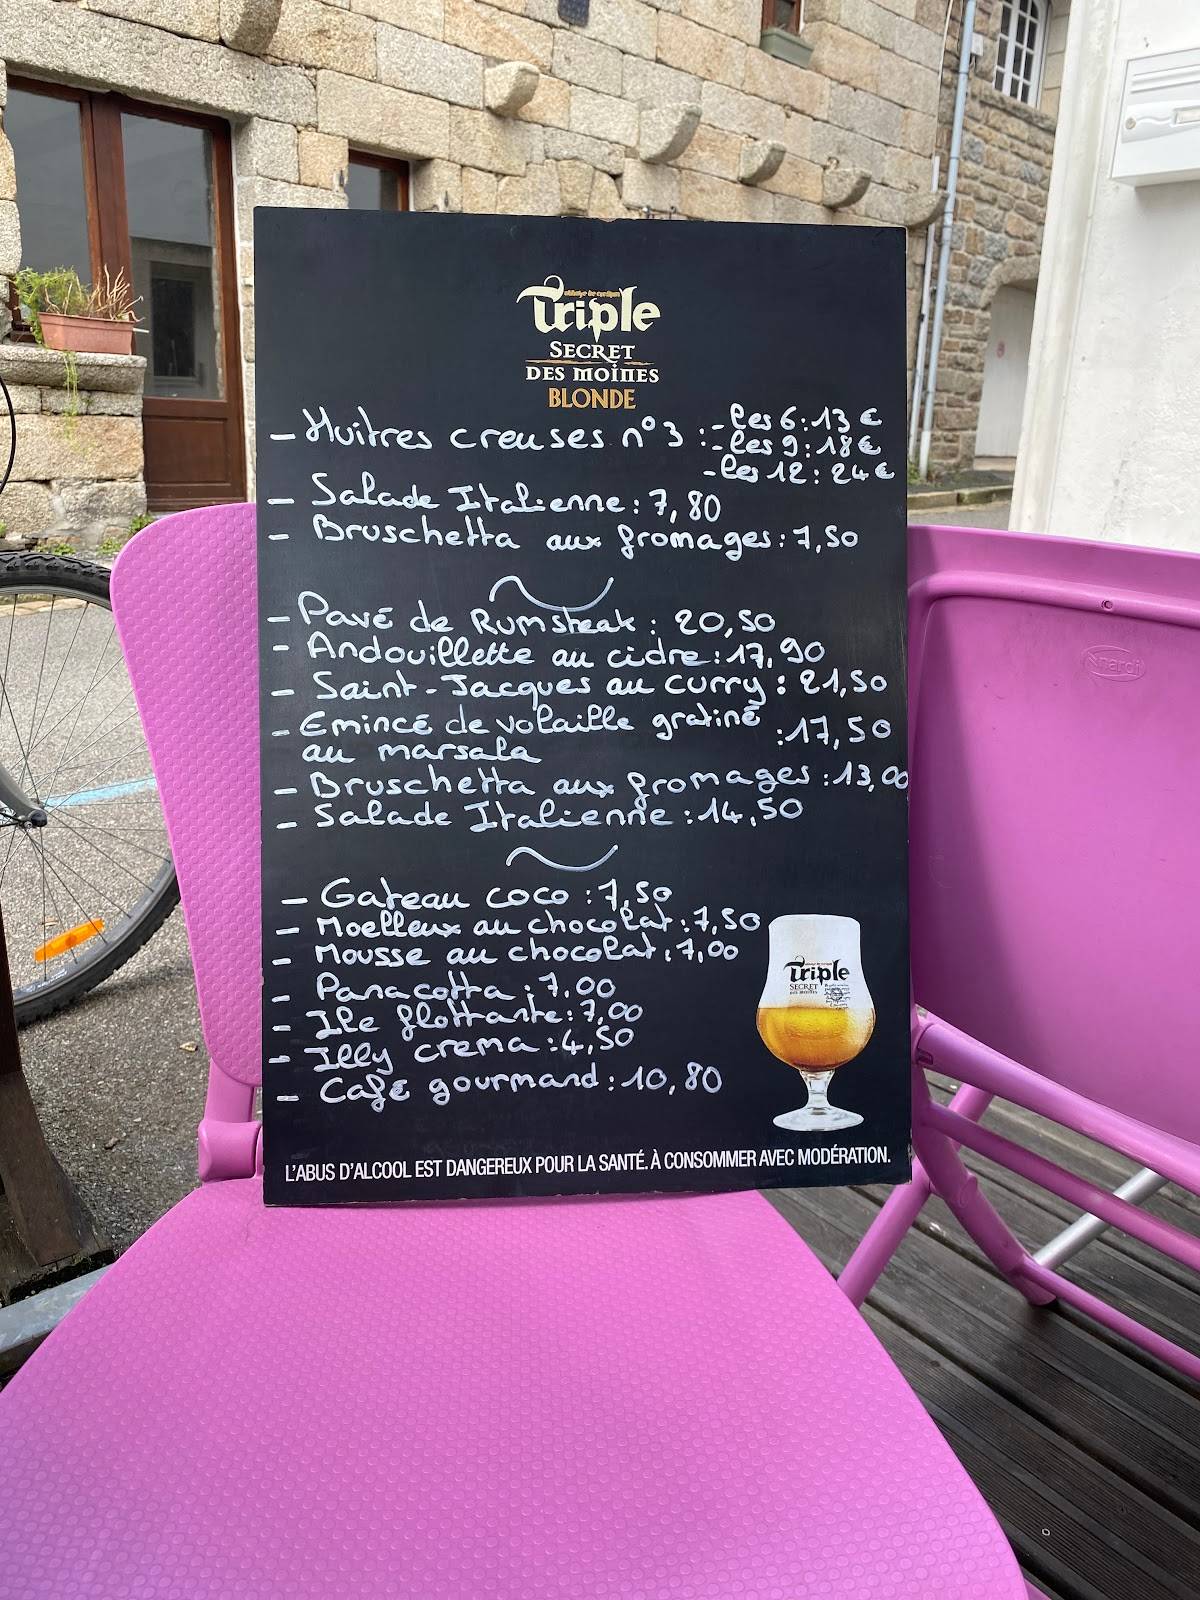 Triple
SECRET
DES MOINES
BLONDE
- Huitres creuses n°3 : - les 6 : 13 €
- les 9 : 18 €
- les 12 : 24 €
- Salade Italienne : 7,80
- Bruschetta aux fromages : 7,50
- Pavé de Rumsteak : 20,50
- Andouillette au cidre : 17,90
- Saint-Jacques au curry : 21,50
- Emincé de volaille gratiné : 17,50
au marsala
- Bruschetta aux fromages : 13,00
- Salade Italienne : 14,50
- Gateau coco : 7,50
- Moelleux au chocolat : 7,50
- Mousse au chocolat : 7,00
- Panacotta : 7.00
- Ile flottante : 7,00
- Illy crema : 4,50
- Café gourmand : 10,80
Triple
SECRET
DES MOINES
L'ABUS D'ALCOOL EST DANGEREUX POUR LA SANTÉ. À CONSOMMER AVEC MODÉRATION.
nardi